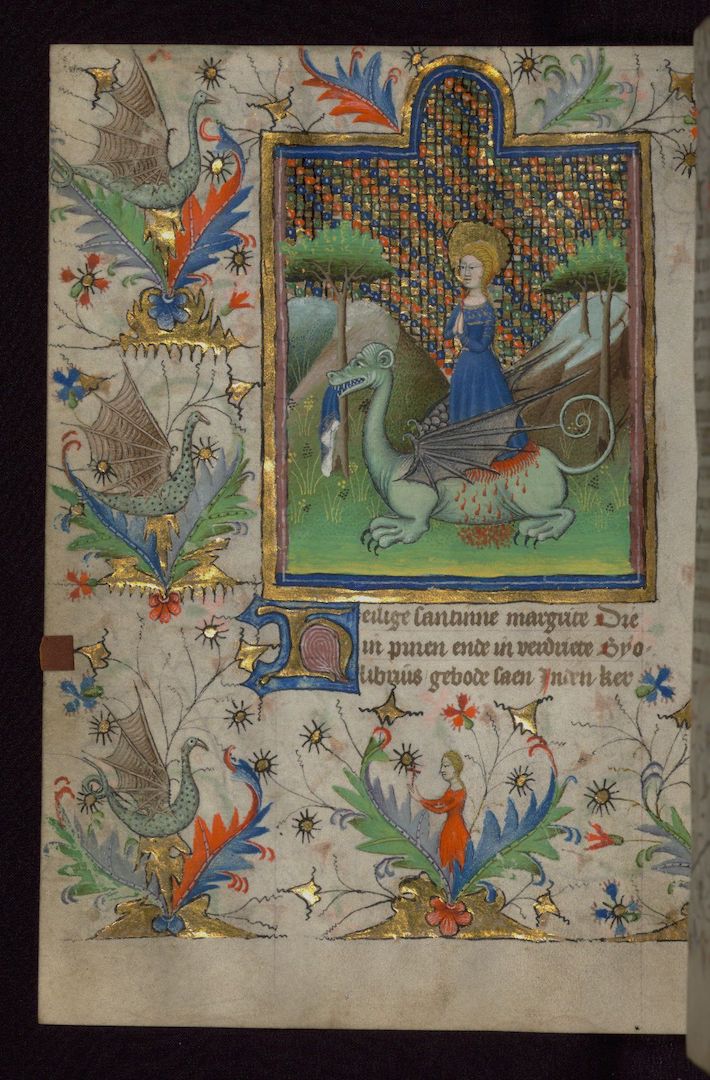 Heilige santinne margriete Die
in pinen ende in verdriete By o-
librius gebode saen Inden ker